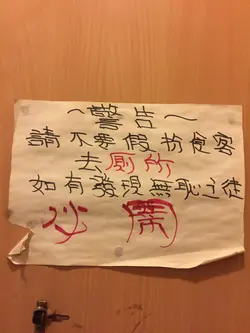 ~警告~
請不要假扮食客
去厠所
如有發現無恥之徒
必鬧